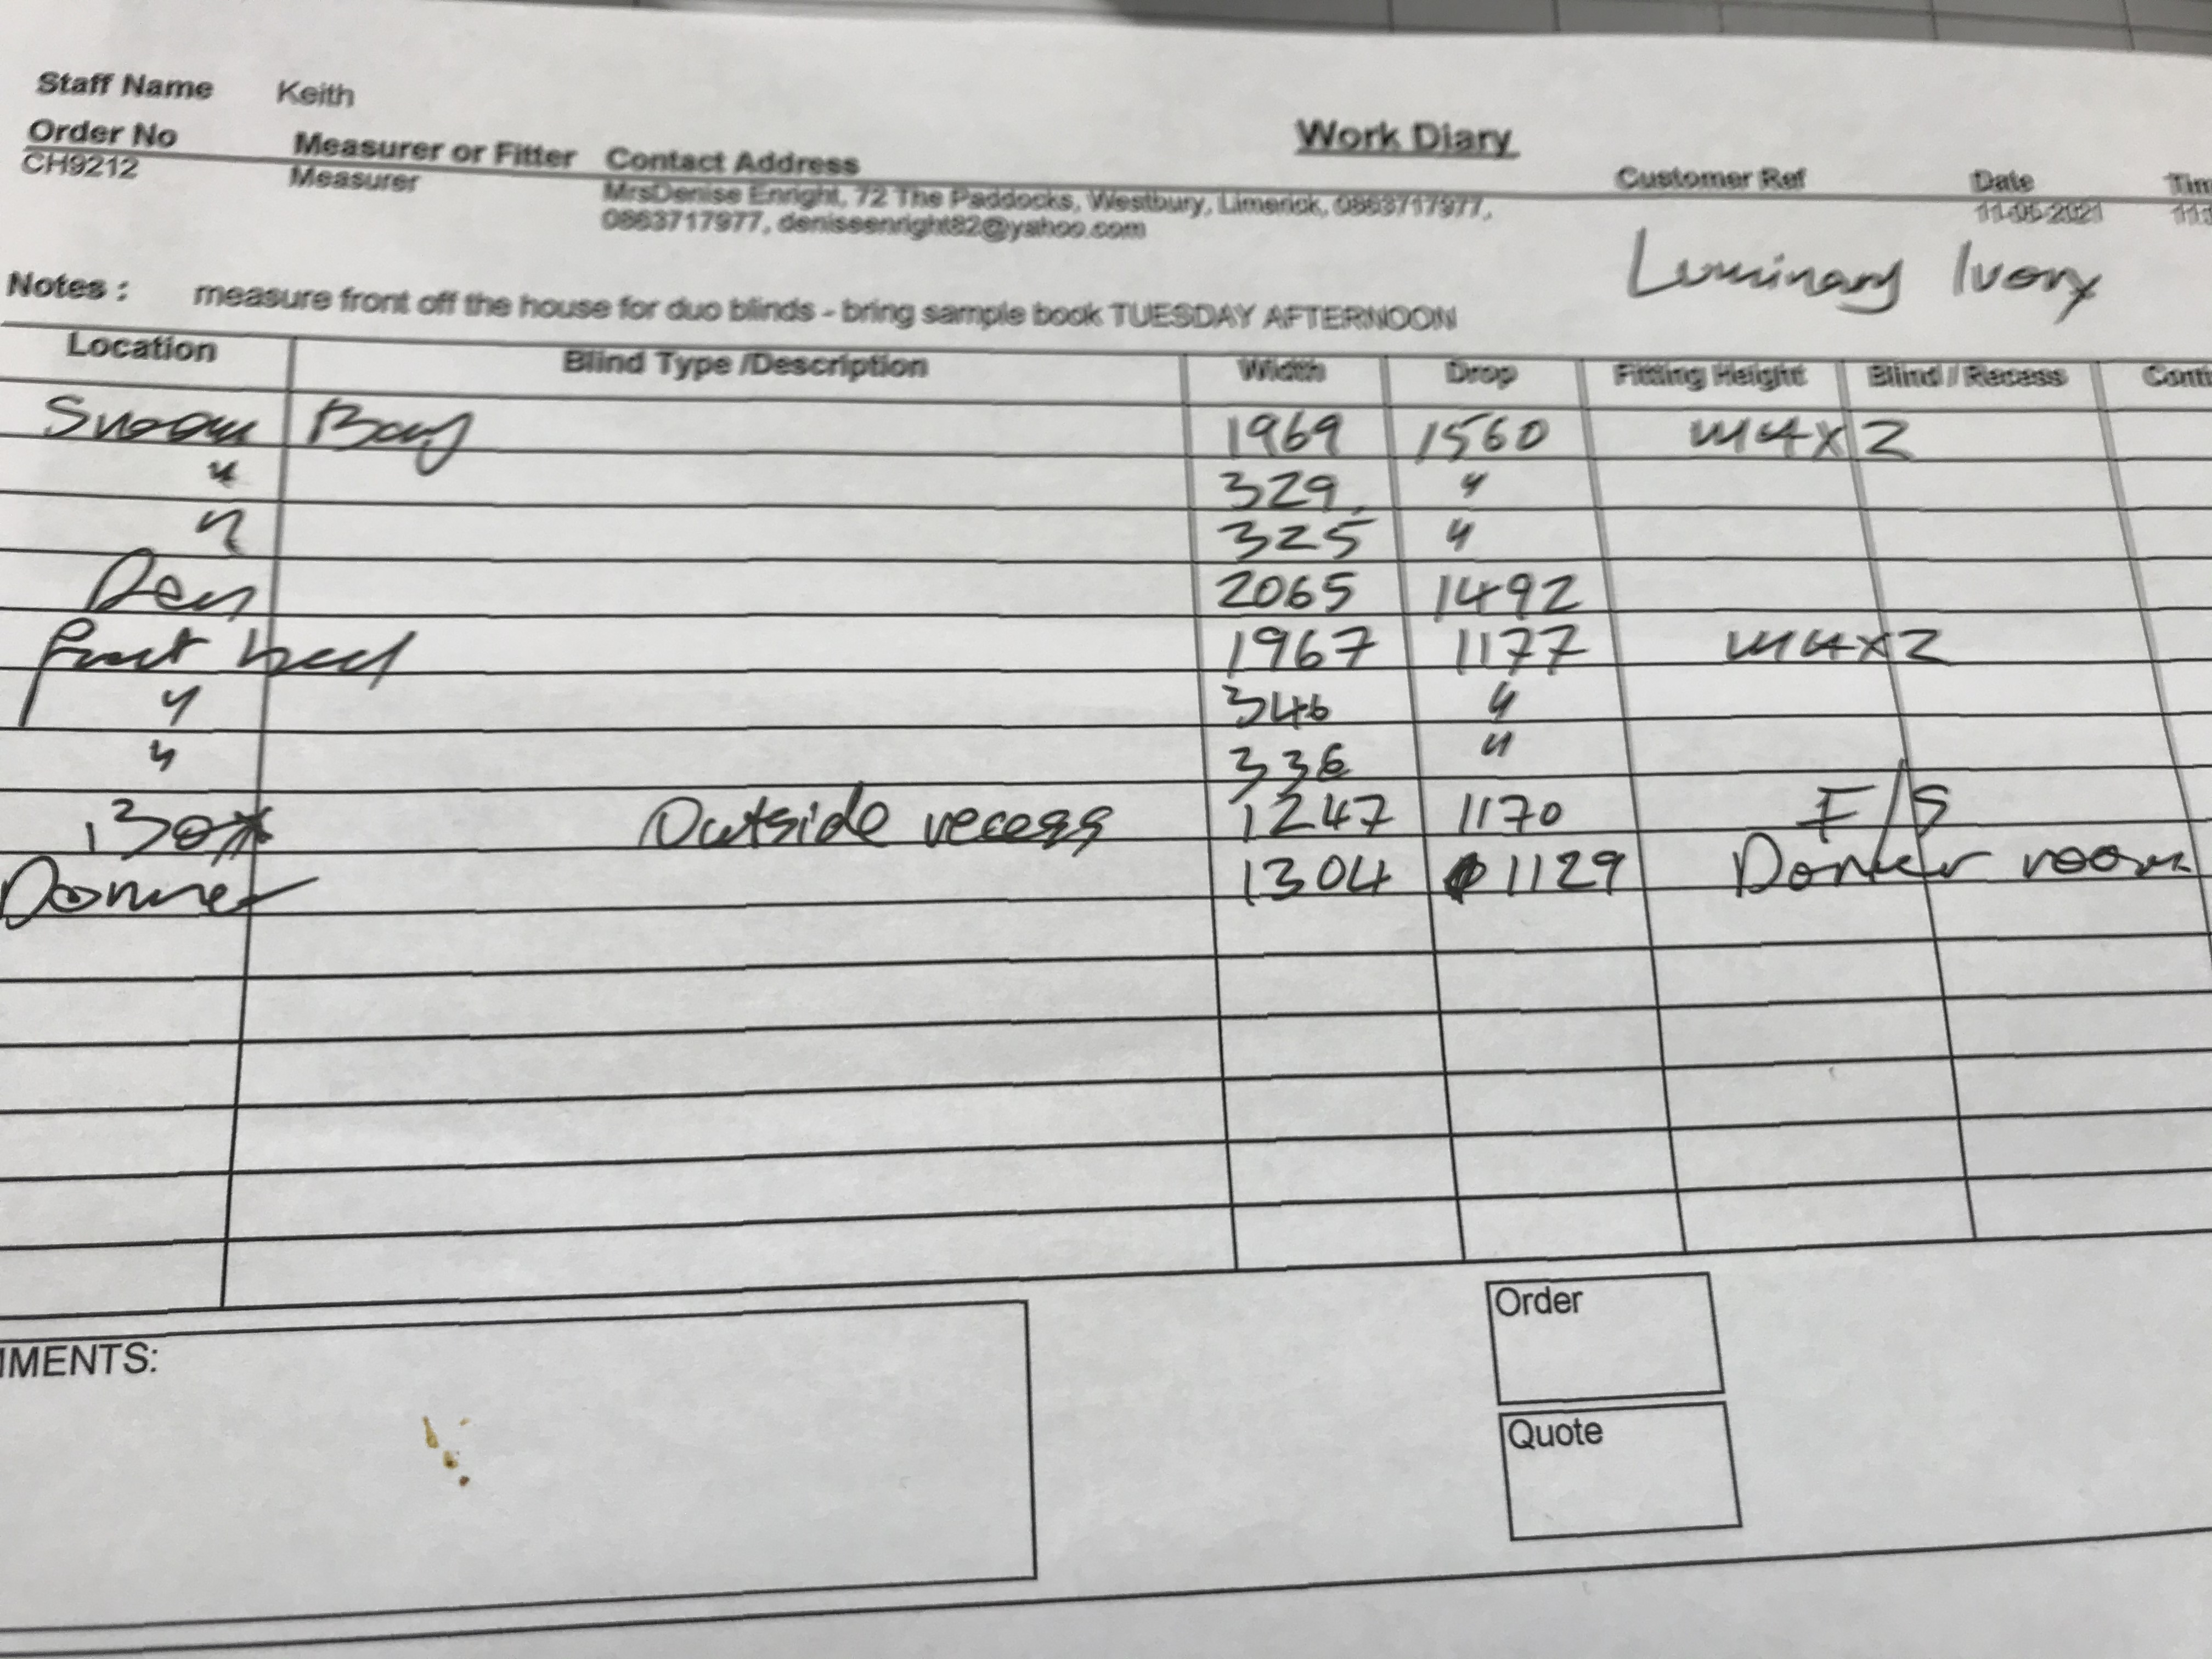 Staff Name Keith
Work Diary
Order No Measurer or Fitter Contact Address Customer Ref Date
CH9212 Measurer MrsDenise Enright, 72 The Paddocks, Westbury, Limerick, 0863717977, 11-05-2021
0863717977, deniseenright82@yahoo.com
Luminary Ivory
Notes : measure front off the house for duo blinds - bring sample book TUESDAY AFTERNOON
Location Blind Type /Description Width Drop Fitting Height Blind / Recess
Bay 1969 1560
" 329 "
" 325 "
Den 2065 1492
front bed 1967 1177
" 346 "
" 336 "
Outside recess 1247 1170 F/S
Dormer 1304 1129 room
Order
MENTS:
Quote